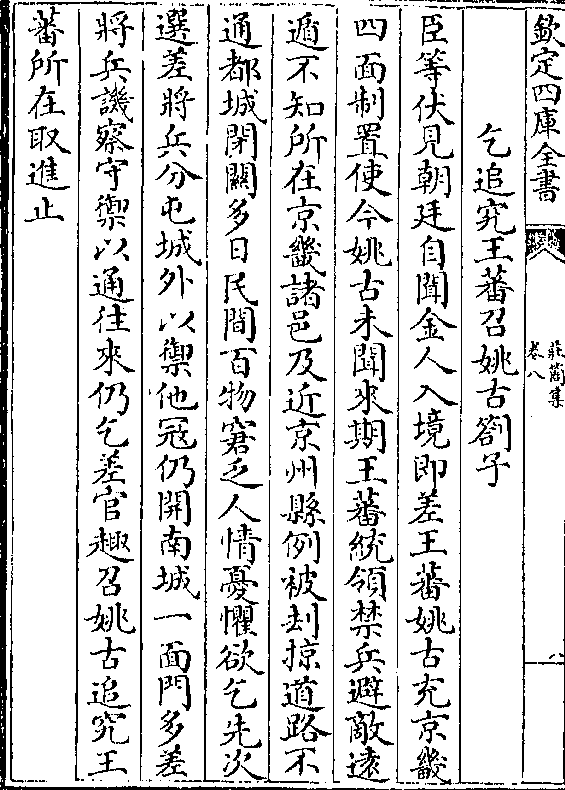 欽定四庫全書
莊簡集
卷八
八
乞追究王蕃召姚古劄子
臣等伏見朝廷自聞金人入境即差王蕃姚古充京畿
四面制置使今姚古未聞來期王蕃統領禁兵避敵遠
遁不知所在京畿諸邑及近京州縣例被刦掠道路不
通都城閉關多日民間百物窘乏人情憂懼欲乞先次
選差將兵分屯城外以禦他冦仍開南城一面門多差
將兵譏察守禦以通往來仍乞差官趣召姚古追究王
蕃所在取進止